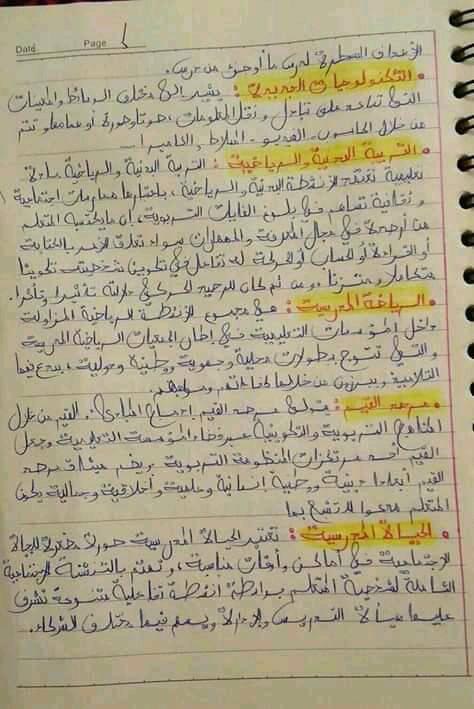 Date Page 6
الأهداف المسطرة لدرس ما أو جزء من درس.
• التكنولوجيات الجديدة : يشير إلى مختلف الوسائط والمعينات
التي تساعد على تبادل ونقل المعلومات، صوتا وصورة أو هما معا، تتم
من خلال الحاسوب - الفيديو - المسلاط والكاميرا ...
• التربية البدنية والرياضية : التربية البدنية والرياضية مادة
تعليمية تعتمد الأنشطة البدنية والرياضية، باعتبارها ممارسات اجتماعية
وثقافية تساهم في بلوغ الغايات التربوية، إن ما يكتسبه المتعلم
من أرصدة في مجال المعرفة والمهارات سواء تعلق الأمر بالكتابة
أو القراءة أو الحساب أو الحركة له تفاعل في تكوين شخصيته تكوينا
متكاملا ومتزنا، ومن ثم كان للرصيد الحركي دلالته تأثيرا وتأثرا.
• الرياضة المدرسية : هي مجموع الأنشطة الرياضية المزاولة
داخل المؤسسات التعليمية في إطار الجمعيات الرياضية المدرسية
والتي تتوج ببطولات محلية وجهوية ووطنية ودولية، يبدع فيها
التلاميذ ويبرزون من خلالها كفاءاتهم ومواهبهم.
• مدرسة القيم : يتولى مدرسة القيم إدماج المبادئ. القيم من خلال
المناهج التربوية والتكوينية عبر فضاء المؤسسة التعليمية وجعل
القيم أحد مرتكزات المنظومة التربوية يضم ميثاق مدرسة
القيم أبعادا دينية ووطنية إنسانية وعلمية وأخلاقية وجمالية يكون
المتعلم مدعوا للتشبع بها
• الحياة المدرسية : تعتبر الحياة المدرسية صورة مصغرة للحياة
الاجتماعية في أماكن وأوقات مناسبة، وتهتم بالتنشئة الاجتماعية
الشاملة لشخصية المتعلم بواسطة أنشطة تفاعلية متنوعة تشرف
عليها هيأة التدريس والإدارة ويسهم فيها مختلف الشركاء.